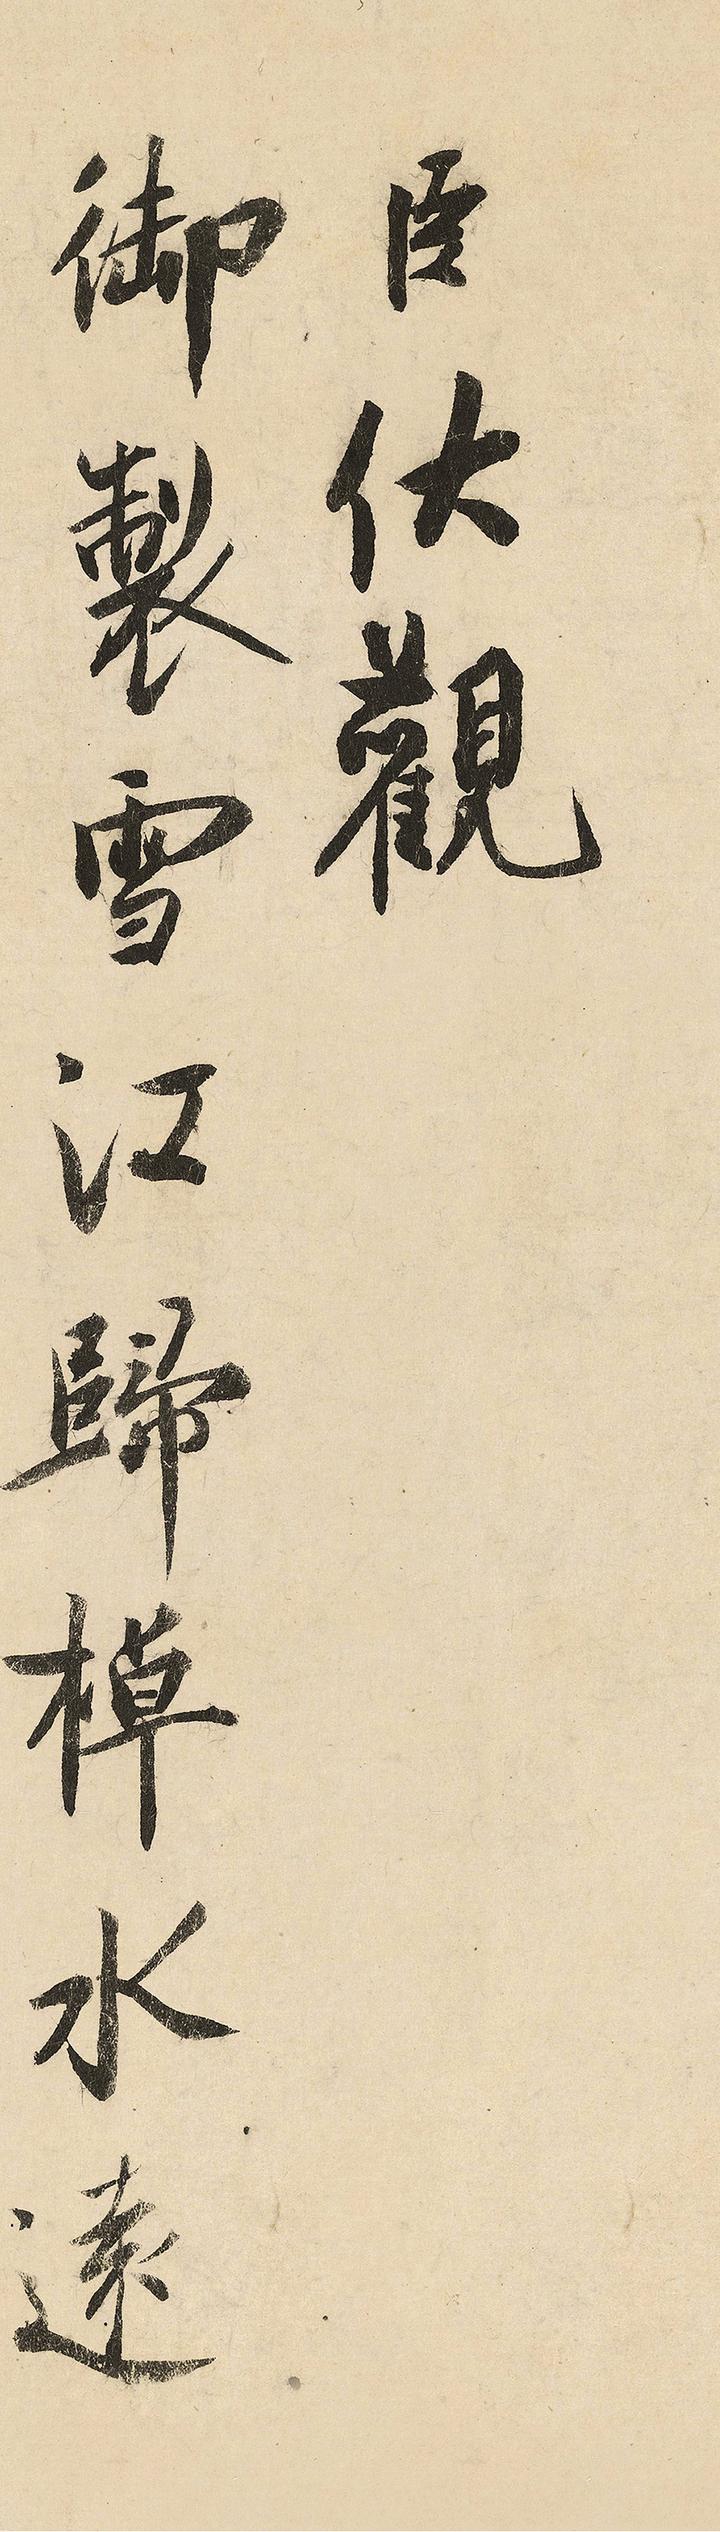 臣伏觀
御製雪江歸棹水遠